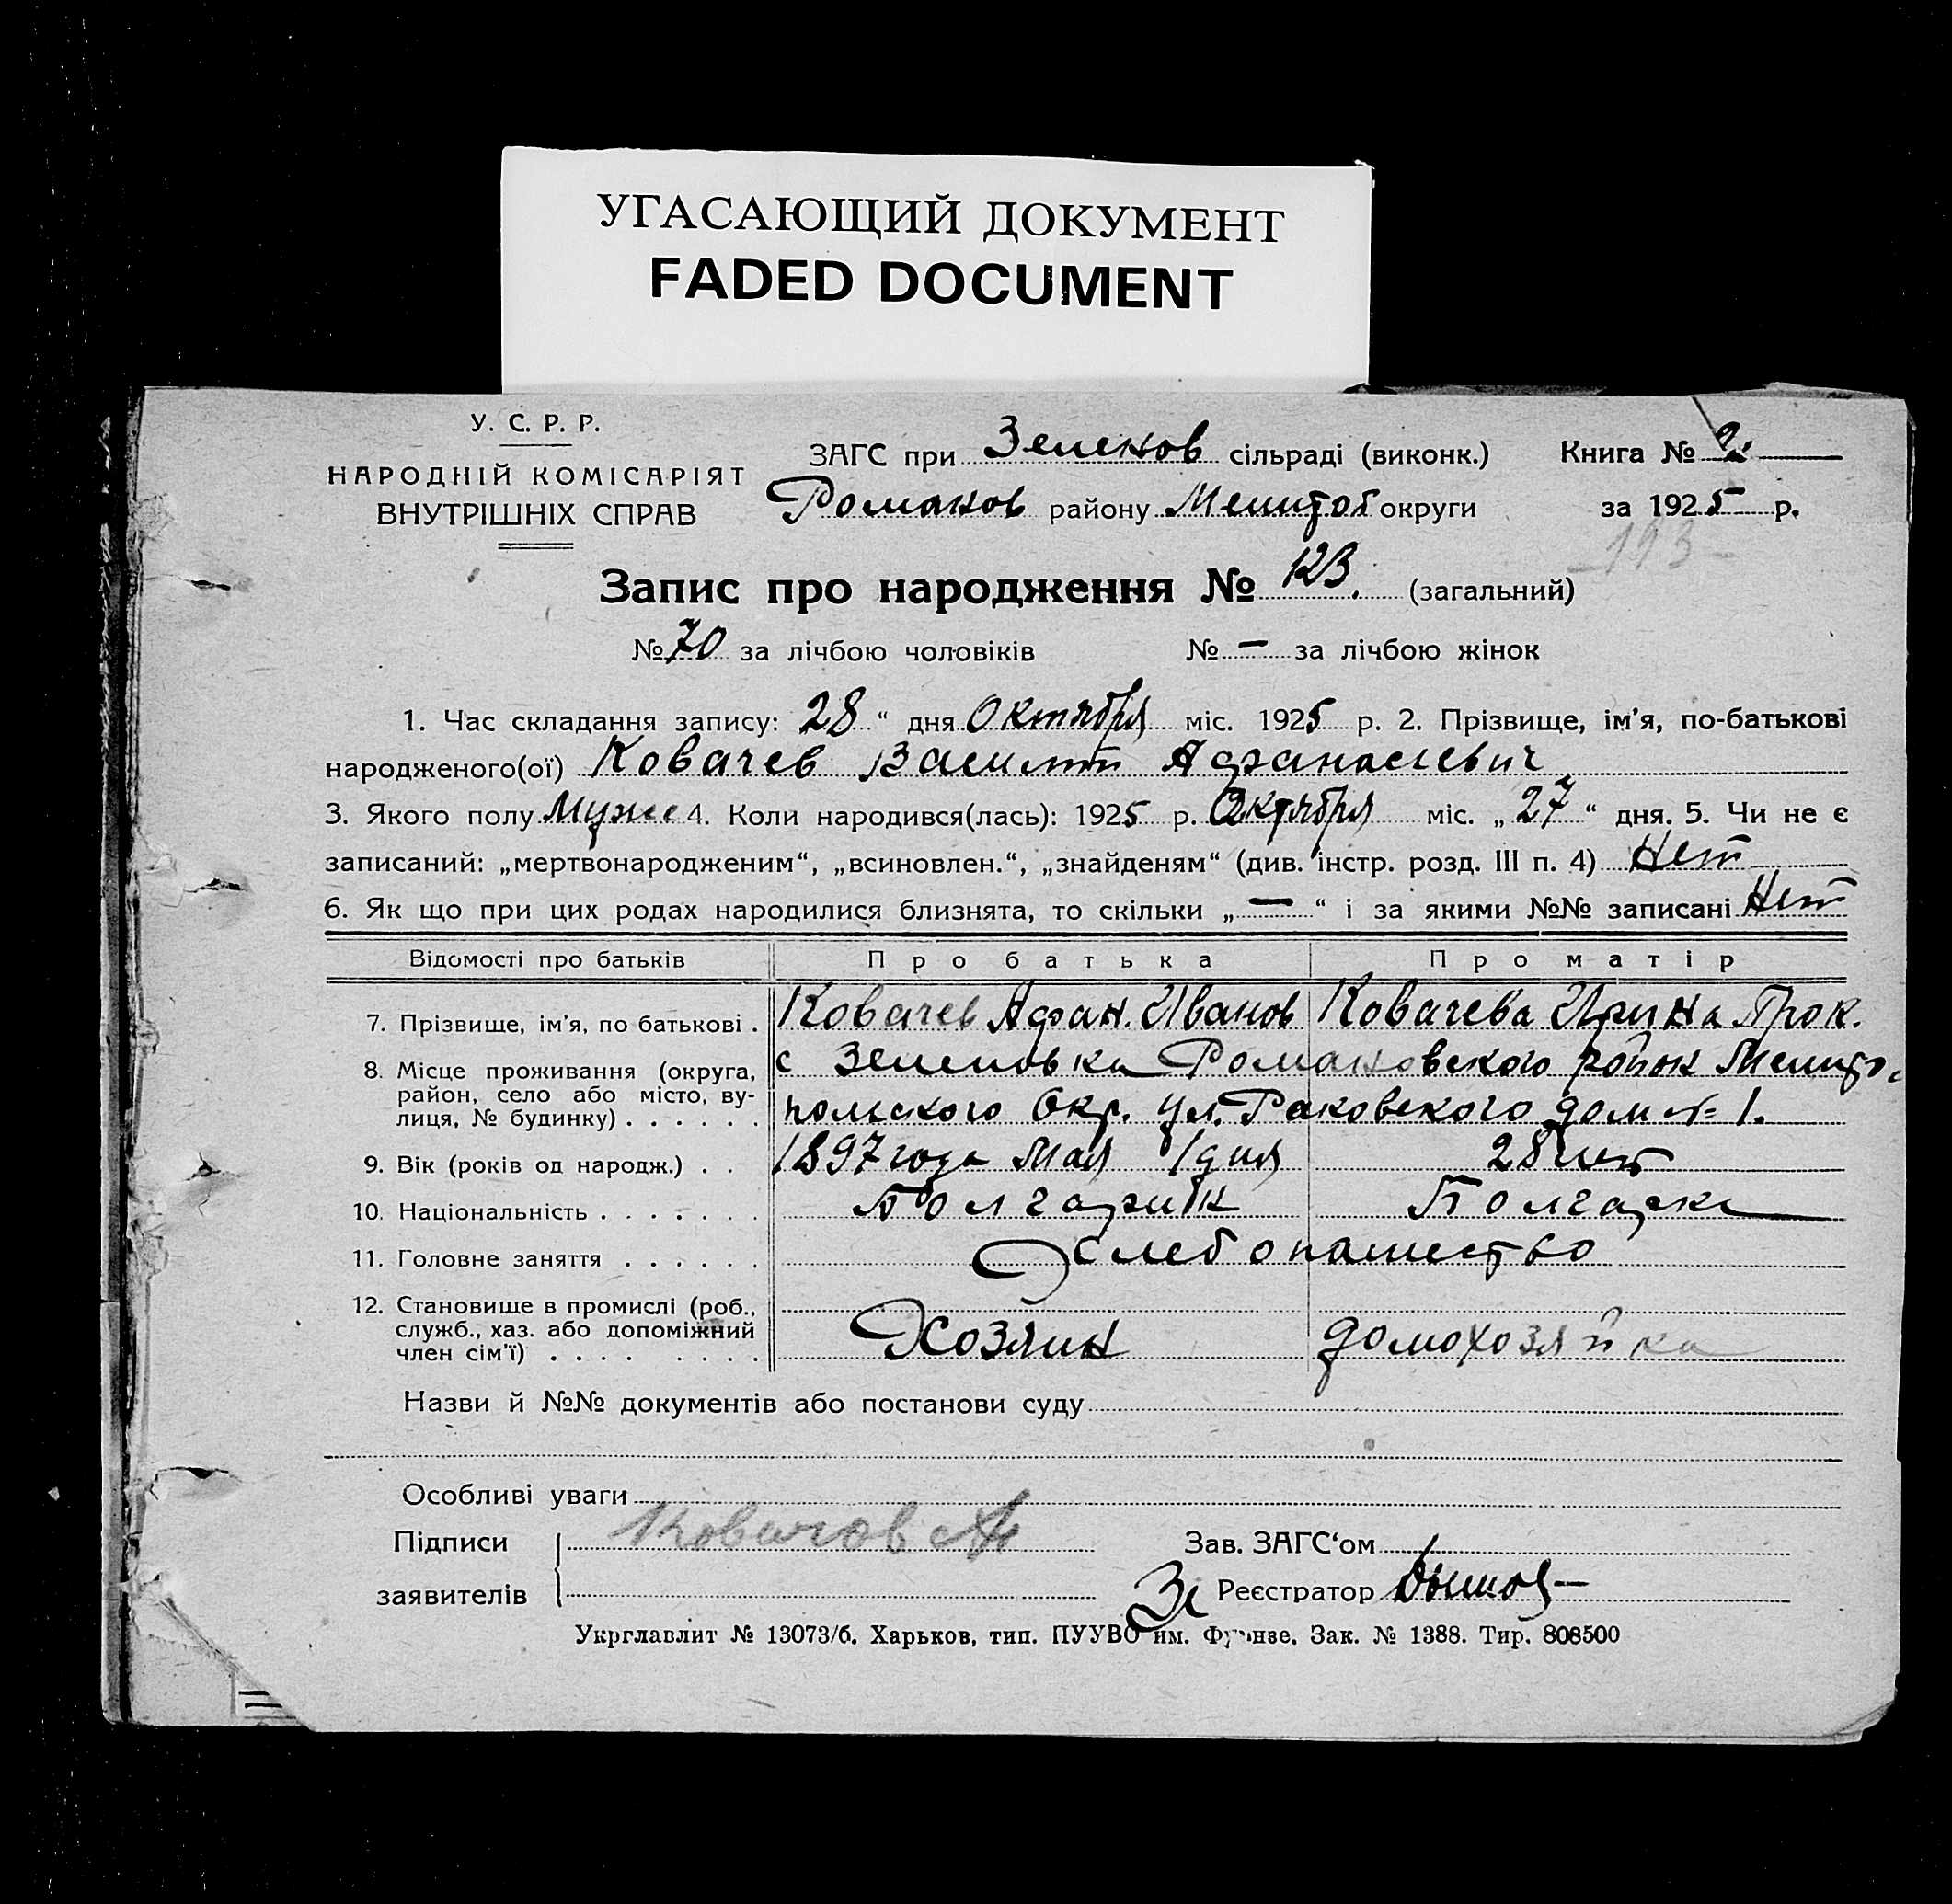 УГАСАЮЩИЙ ДОКУМЕНТ
FADED DOCUMENT
У. С. Р. Р.
НАРОДНІЙ КОМІСАРІЯТ
ВНУТРІШНІХ СПРАВ
ЗАГС при Зеленов сільраді (виконк.)
Романов району Мелитоп округи
Книга № 2
за 1925 р.
193
Запис про народження № 123. (загальний)
№ 70 за лічбою чоловіків № — за лічбою жінок
1. Час складання запису: 28 “ дня Октября міс. 1925 р. 2. Прізвище, ім’я, по-батькові
народженого(ої) Ковачев Василий Афанасиевич
3. Якого полу Мужс 4. Коли народився(лась): 1925 р. Октября міс. „ 27 “ дня. 5. Чи не є
записаний: „мертвонародженим“, „всиновлен.“, „знайденям“ (див. інстр. розд. III п. 4) Нет
6. Як що при цих родах народилися близнята, то скільки „ — “ і за якими №№ записані Нет
Відомості про батьків Про батька Про матір
7. Прізвище, ім’я, по батькові . Ковачев Афан. Иванов Ковачева Ирина Прок.
8. Місце проживання (округа, район, село або місто, вулиця, № будинку) . . . . . .
с Зеленовка Романовского район Мелито-
польского Окр. ул. Раковского дом № 1.
9. Вік (років од народж.) . . 1897 года Мая 1 дня 28 лет
10. Національність . . . . . . . Болгарин Болгарка
11. Головне заняття . . . . . . Хлебопашество
12. Становище в промислі (роб., служб., хаз. або допоміжний член сім’ї) . . . . . . . .
Хозяин домохозяйка
Назви й №№ документів або постанови суду
Особливі уваги
Підписи заявителів Ковачов А
Зав. ЗАГС‘ом
За Реєстратор
Укрглавлит № 13073/б. Харьков, тип. ПУУВО им. Фрунзе. Зак. № 1388. Тир. 808500